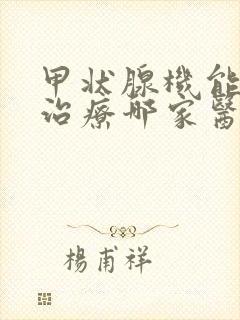 甲狀腺機能
治療哪家醫
楊甫祥